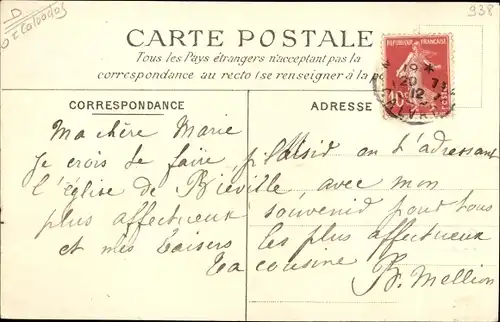 D
Calvados
938
CARTE POSTALE
Tous les Pays étrangers n'acceptant pas la
correspondance au recto (se renseigner à la
CORRESPONDANCE
ADRESSE
REPUBLIQUE FRANÇAISE
10
POSTES
20 7
12
CALVA
Ma chère Marie
Je crois te faire plaisir en t'adressant
l'église de Biéville, avec mon
plus affectueux souvenir pour tous
et mes baisers les plus affectueux
Ta cousine B. Mellion